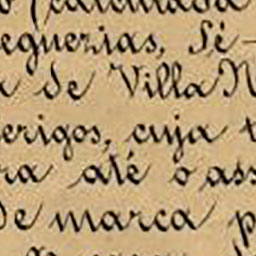 eguezias, Sé-
a de Villa N
erigos, cuja t
ra até o ass
de marca p